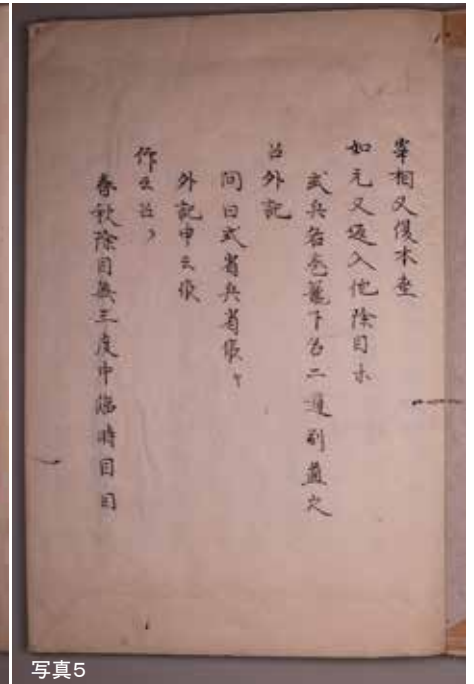 宰相又復本座
如元又返入他除目ホ
式兵省丞篭下名二通引蓋次
召外記
問曰式省兵省候ヤ
外記申云候
仰云召ゝ
春秋除目無三度中臨時目目
写真5